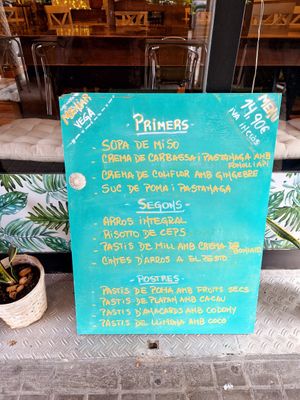 MENÚ
VEGÀ
MENÚ
14,90€
IVA INCLÒS
PRIMERS
- SOPA DE MISO
- CREMA DE CARBASSA I PASTANAGA AMB FONOLL I API
- CREMA DE COLIFLOR AMB GINGEBRE
- SUC DE POMA I PASTANAGA
SEGONS
- ARROS INTEGRAL
- RISOTTO DE CEPS
- PASTIS DE MILL AMB CREMA DE BONIATO
- CINTES D'ARROS A EL PESTO
POSTRES
- PASTIS DE POMA AMB FRUITS SECS
- PASTIS DE PLATAN AMB CACAU
- PASTIS D'ANACARDS AMB CODONY
- PASTIS DE LLIMONA AMB COCO